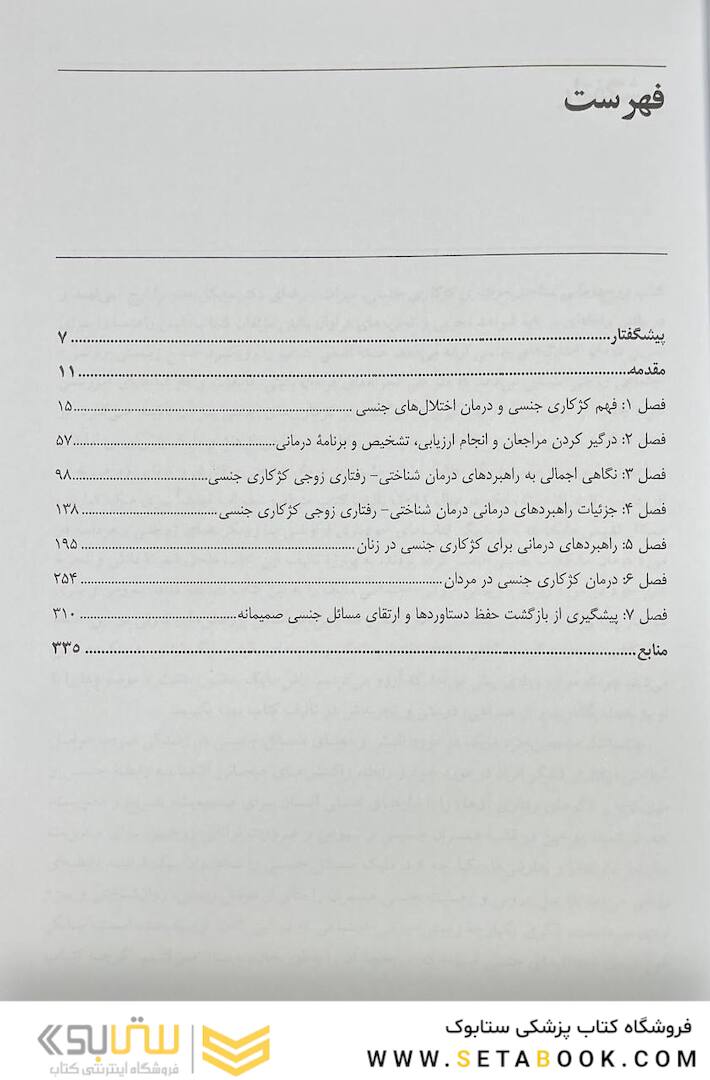 فهرست
پیشگفتار ........ ۷
مقدمه ........ ۱۱
فصل ۱: فهم کژکاری جنسی و درمان اختلال‌های جنسی ........ ۱۵
فصل ۲: درگیر کردن مراجعان و انجام ارزیابی، تشخیص و برنامهٔ درمانی ........ ۵۷
فصل ۳: نگاهی اجمالی به راهبردهای درمان شناختی- رفتاری زوجی کژکاری جنسی ........ ۹۸
فصل ۴: جزئیات راهبردهای درمانی درمان شناختی- رفتاری زوجی کژکاری جنسی ........ ۱۳۸
فصل ۵: راهبردهای درمانی برای کژکاری جنسی در زنان ........ ۱۹۵
فصل ۶: درمان کژکاری جنسی در مردان ........ ۲۵۴
فصل ۷: پیشگیری از بازگشت حفظ دستاوردها و ارتقای مسائل جنسی صمیمانه ........ ۳۱۰
منابع ........ ۳۳۵
فروشگاه کتاب پزشکی ستابوک
WWW.SETABOOK.COM
ستابوک
فروشگاه اینترنتی کتاب